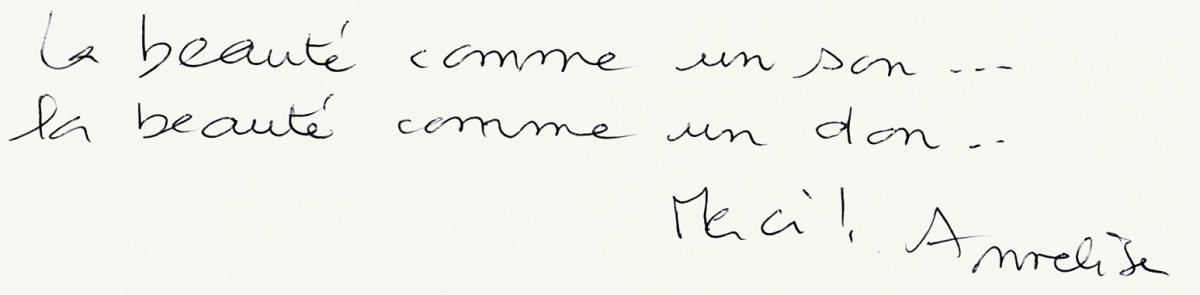 La beauté comme un son ...
la beauté comme un don ..
Merci ! Annelise